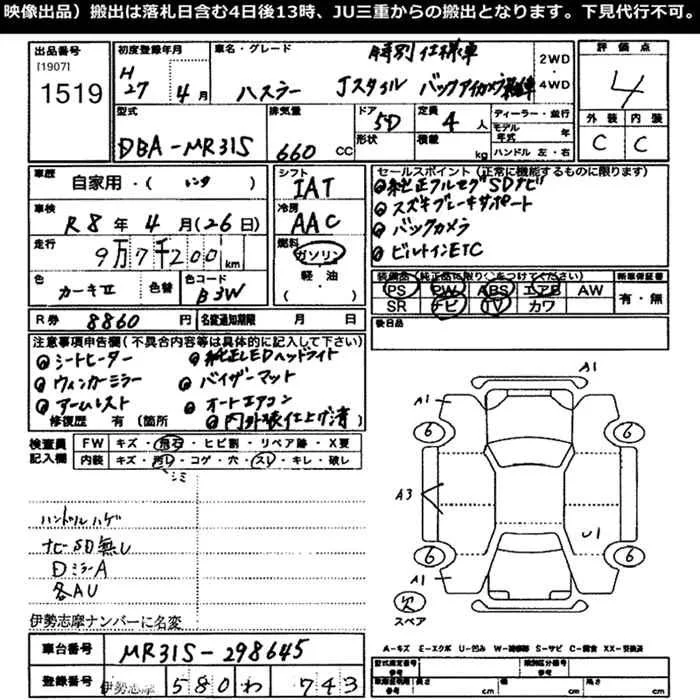 映像出品）搬出は落札日含む4日後13時、JU三重からの搬出となります。下見代行不可。
出品番号
[1907]
1519
初度登録年月
H27年4月
車名・グレード
特別仕様車
ハスラー Jスタイル バックアイカメラ
2WD
4WD
評価点
4
外装 内装
C C
型式
DBA-MR31S
排気量
660 CC
ドア
5D
形状
定員
4人
積載
kg
ディーラー・並行
モデル年式 年
ハンドル 左・右
車歴
自家用・( レンタ )
車検
R8年4月(26日)
走行
9万7千200km
色
カーキⅡ
色替
色コード
B3W
シフト
IAT
冷房
AAC
燃料
ガソリン
軽・油
( )
セールスポイント（正常に機能するものに限ります）
純正フルセグSDナビ
スズキブレーキサポート
バックカメラ
ビルトインETC
装備品（純正品に限り○をつけてください）
PS PW ABS エアB AW
SR ナビ TV カワ
新車保証書
有・無
後日品
R券 8860円
名変通知期限 月 日
注意事項申告欄（不具合内容等は具体的に記入して下さい）
シートヒーター
純正LEDヘッドライト
ウィンカーミラー
バイザーマット
アームレスト
オートエアコン
修復歴 有（箇所
内外装仕上げ済
検査員記入欄
FW キズ・飛石・ヒビ割・リペア跡・X要
内装 キズ・汚レ・コゲ・穴・スレ・キレ・破レ
シミ
ハンドルハゲ
ナビSD無し
DミラーA
各AU
伊勢志摩ナンバーに名変
A1
A1
6 6
A3
U1
6 6
A1
欠
スペア
A-キズ E-エクボ U-凹み W-補修跡 S-サビ C-腐食 XX-交換済
車台番号
MR31S-298645
登録番号
伊勢志摩 580 わ 743
型式指定番号
類別区分番号
参考
長さ cm
幅 cm
高さ cm